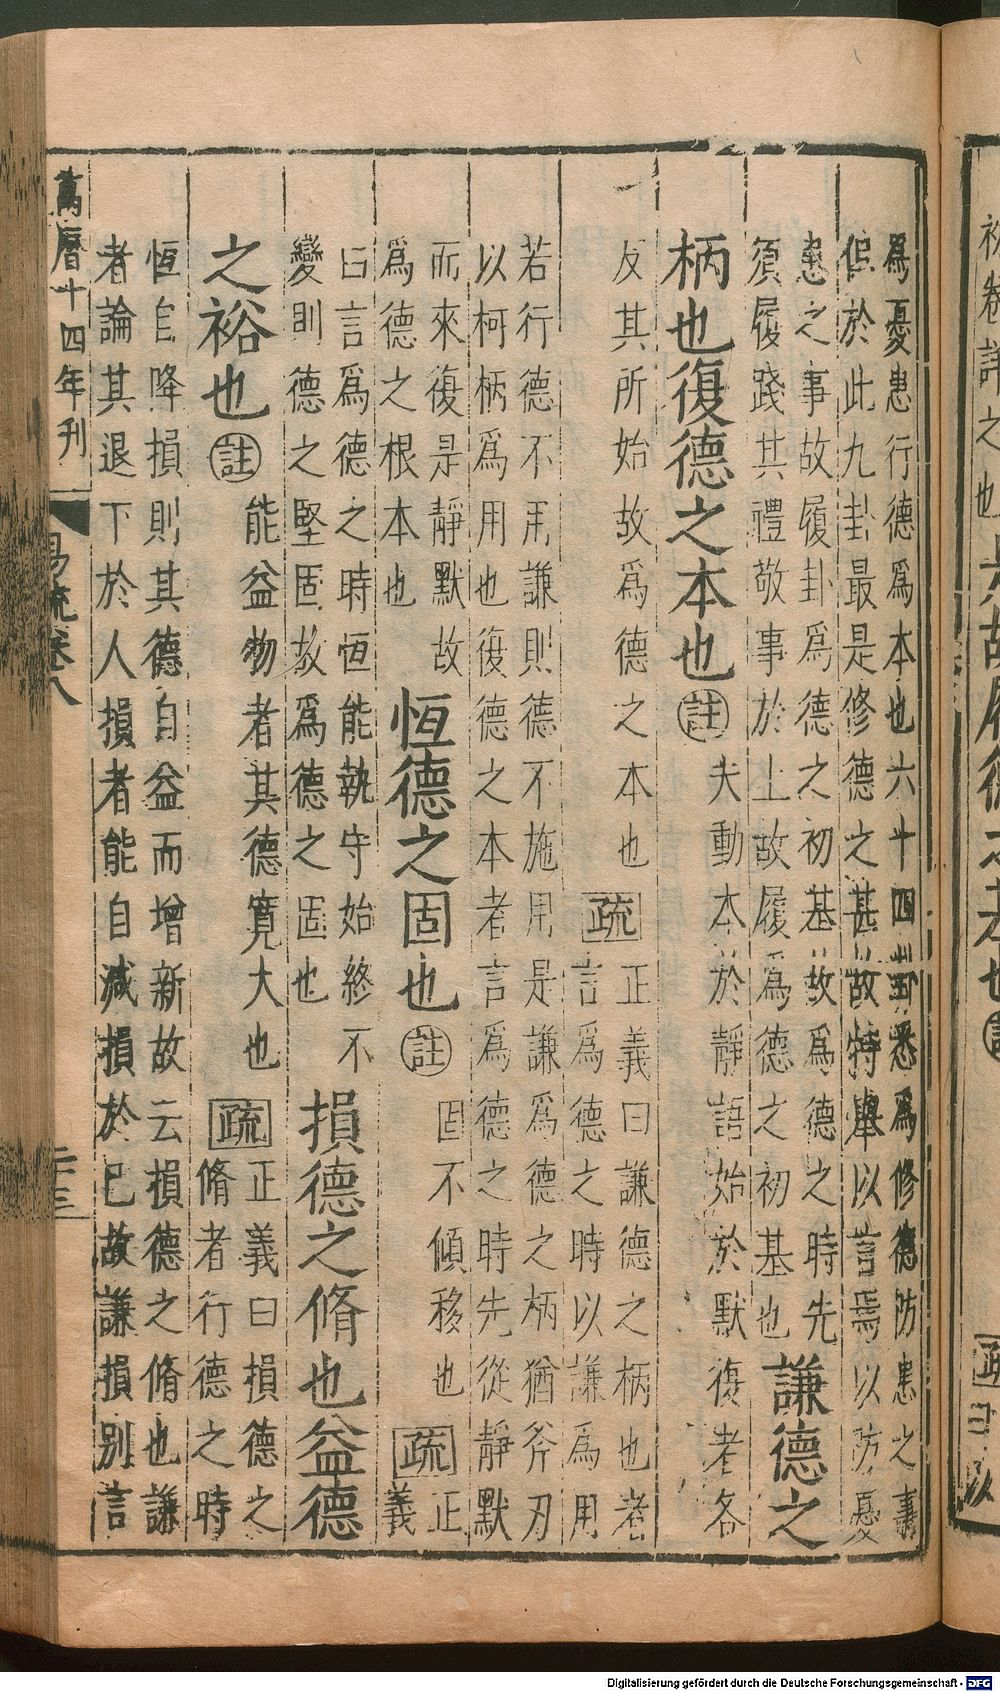 爲憂患行德爲本也六十四卦悉爲修德防患之事
但於此九卦最是修德之甚故特舉以言焉以防憂
患之事故履卦爲德之初基故爲德之時先
須履踐其禮敬事於上故履爲德之初基也
謙德之
柄也復德之本也
註
夫動本於靜語始於默復者各
反其所始故爲德之本也
疏
正義曰謙德之柄也者
言爲德之時以謙爲用
若行德不用謙則德不施用是謙爲德之柄猶斧刃
以柯柄爲用也復德之本者言爲德之時先從靜默
而來復是靜默故
爲德之根本也
恆德之固也
註
固不傾移也
疏
正
義
曰言爲德之時恒能執守始終不
變則德之堅固故爲德之固也
損德之脩也益德
之裕也
註
能益物者其德寬大也
疏
正義曰損德之
脩者行德之時
恆自降損則其德自益而增新故云損德之脩也謙
者論其退下於人損者能自減損於己故謙損別言
萬曆十四年刊
易疏卷八
二十三
Digitalisierung gefördert durch die Deutsche Forschungsgemeinschaft - DFG